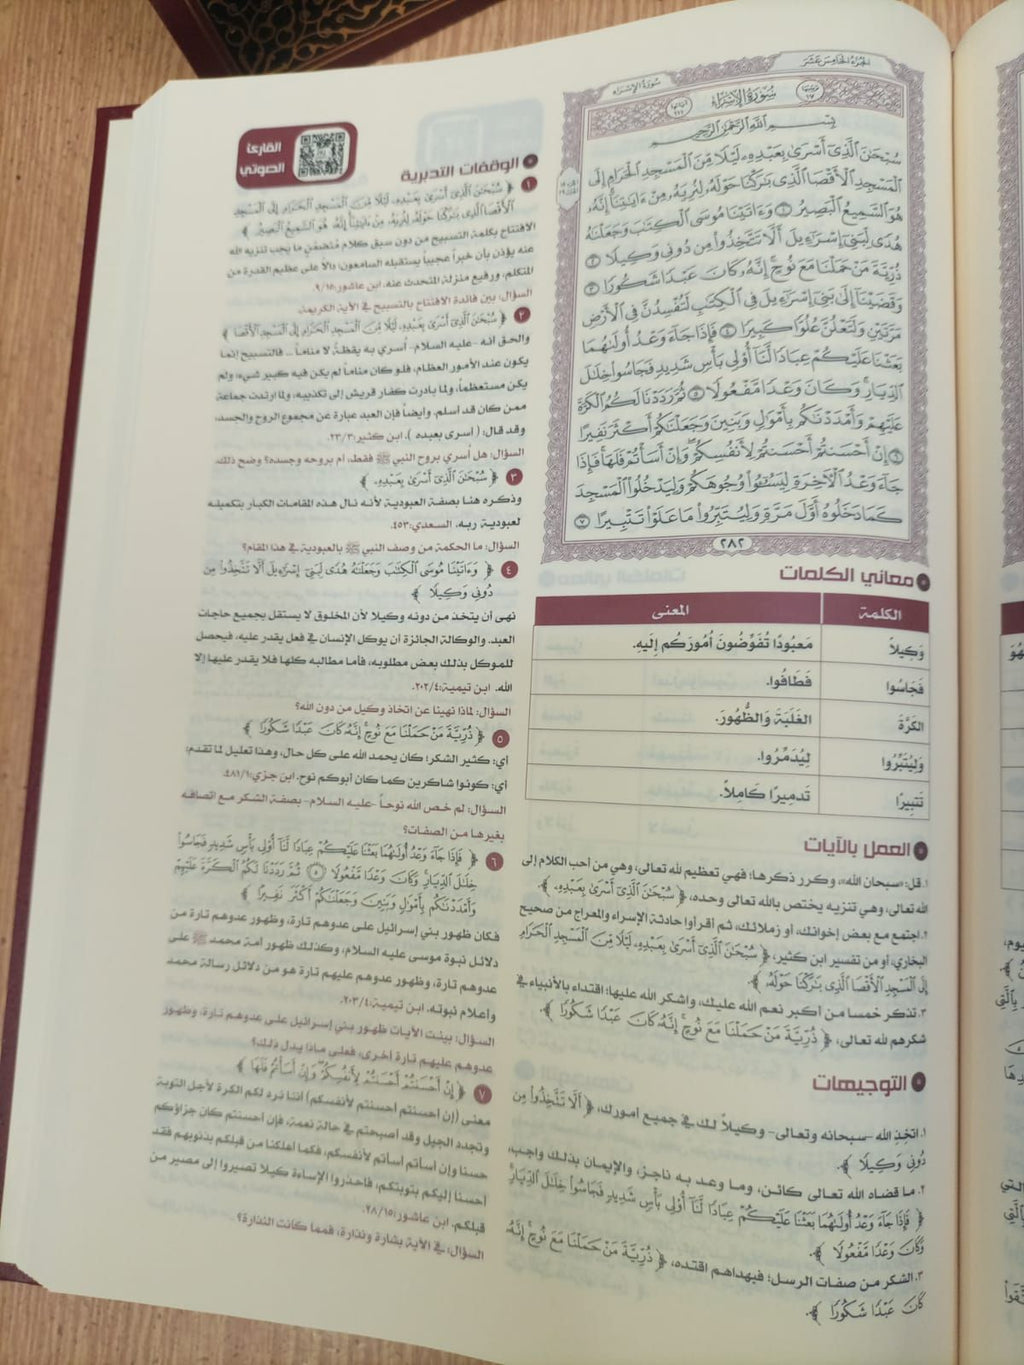 الجزء الخامس عشر
سورة الإسراء
سورة الإسراء
بسم الله الرحمن الرحيم
سُبْحَٰنَ ٱلَّذِىٓ أَسْرَىٰ بِعَبْدِهِۦ لَيْلًا مِّنَ ٱلْمَسْجِدِ ٱلْحَرَامِ إِلَى
ٱلْمَسْجِدِ ٱلْأَقْصَا ٱلَّذِى بَٰرَكْنَا حَوْلَهُۥ لِنُرِيَهُۥ مِنْ ءَايَٰتِنَآ إِنَّهُۥ
هُوَ ٱلسَّمِيعُ ٱلْبَصِيرُ ١ وَءَاتَيْنَا مُوسَى ٱلْكِتَٰبَ وَجَعَلْنَٰهُ
هُدًى لِّبَنِىٓ إِسْرَٰٓءِيلَ أَلَّا تَتَّخِذُوا۟ مِن دُونِى وَكِيلًا ٢
ذُرِّيَّةَ مَنْ حَمَلْنَا مَعَ نُوحٍ إِنَّهُۥ كَانَ عَبْدًا شَكُورًا ٣
وَقَضَيْنَآ إِلَىٰ بَنِىٓ إِسْرَٰٓءِيلَ فِى ٱلْكِتَٰبِ لَتُفْسِدُنَّ فِى ٱلْأَرْضِ
مَرَّتَيْنِ وَلَتَعْلُنَّ عُلُوًّا كَبِيرًا ٤ فَإِذَا جَآءَ وَعْدُ أُولَىٰهُمَا
بَعَثْنَا عَلَيْكُمْ عِبَادًا لَّنَآ أُو۟لِى بَأْسٍ شَدِيدٍ فَجَاسُوا۟ خِلَٰلَ
ٱلدِّيَارِ وَكَانَ وَعْدًا مَّفْعُولًا ٥ ثُمَّ رَدَدْنَا لَكُمُ ٱلْكَرَّةَ
عَلَيْهِمْ وَأَمْدَدْنَٰكُم بِأَمْوَٰلٍ وَبَنِينَ وَجَعَلْنَٰكُمْ أَكْثَرَ نَفِيرًا
٦ إِنْ أَحْسَنتُمْ أَحْسَنتُمْ لِأَنفُسِكُمْ وَإِنْ أَسَأْتُمْ فَلَهَا فَإِذَا
جَآءَ وَعْدُ ٱلْءَاخِرَةِ لِيَسُۥٓـُٔوا۟ وُجُوهَكُمْ وَلِيَدْخُلُوا۟ ٱلْمَسْجِدَ
كَمَا دَخَلُوهُ أَوَّلَ مَرَّةٍ وَلِيُتَبِّرُوا۟ مَا عَلَوْا۟ تَتْبِيرًا ٧
٢٨٢
معاني الكلمات
الكلمة المعنى
وَكِيلاً مَعبُودًا تُفَوِّضُونَ أُمُورَكُم إِلَيهِ.
فَجَاسُوا فَطَافُوا.
الكَرَّةَ الغَلَبَةَ وَالظُّهُورَ.
وَلِيُتَبِّرُوا لِيُدَمِّرُوا.
تَتبِيرًا تَدمِيرًا كَامِلاً.
العمل بالآيات
١. قل: «سبحان الله»، وكرر ذكرها؛ فهي تعظيم لله تعالى، وهي من أحب الكلام إلى
الله تعالى، وهي تنزيه يختص بالله تعالى وحده، ﴿ سُبْحَٰنَ ٱلَّذِىٓ أَسْرَىٰ بِعَبْدِهِۦ ﴾.
٢. اجتمع مع بعض إخوانك، أو زملائك، ثم اقرأوا حادثة الإسراء والمعراج من صحيح
البخاري، أو من تفسير ابن كثير، ﴿ سُبْحَٰنَ ٱلَّذِىٓ أَسْرَىٰ بِعَبْدِهِۦ لَيْلًا مِّنَ ٱلْمَسْجِدِ ٱلْحَرَامِ
إِلَى ٱلْمَسْجِدِ ٱلْأَقْصَا ٱلَّذِى بَٰرَكْنَا حَوْلَهُۥ ﴾.
٣. تذكر خمسا من أكبر نعم الله عليك، واشكر الله عليها؛ اقتداء بالأنبياء في
شكرهم لله تعالى، ﴿ ذُرِّيَّةَ مَنْ حَمَلْنَا مَعَ نُوحٍ إِنَّهُۥ كَانَ عَبْدًا شَكُورًا ﴾.
التوجيهات
١. اتخِذِ الله -سبحانه وتعالى- وكيلاً لك في جميع أمورك، ﴿ أَلَّا تَتَّخِذُوا۟ مِن
دُونِى وَكِيلًا ﴾.
٢. ما قضاه الله تعالى كائن، وما وعد به ناجز، والإيمان بذلك واجب،
﴿ فَإِذَا جَآءَ وَعْدُ أُولَىٰهُمَا بَعَثْنَا عَلَيْكُمْ عِبَادًا لَّنَآ أُو۟لِى بَأْسٍ شَدِيدٍ فَجَاسُوا۟ خِلَٰلَ ٱلدِّيَارِ
وَكَانَ وَعْدًا مَّفْعُولًا ﴾.
٣. الشكر من صفات الرسل؛ فبهداهم اقتده، ﴿ ذُرِّيَّةَ مَنْ حَمَلْنَا مَعَ نُوحٍ إِنَّهُۥ
كَانَ عَبْدًا شَكُورًا ﴾.
القارئ
الصوتي
الوقفات التدبرية
١ ﴿ سُبْحَٰنَ ٱلَّذِىٓ أَسْرَىٰ بِعَبْدِهِۦ لَيْلًا مِّنَ ٱلْمَسْجِدِ ٱلْحَرَامِ إِلَى ٱلْمَسْجِدِ
ٱلْأَقْصَا ٱلَّذِى بَٰرَكْنَا حَوْلَهُۥ لِنُرِيَهُۥ مِنْ ءَايَٰتِنَآ إِنَّهُۥ هُوَ ٱلسَّمِيعُ ٱلْبَصِيرُ ﴾
الافتتاح بكلمة التسبيح من دون سبق كلام مُتضمِّنٍ ما يجب تنزيه الله
عنه يؤذن بأن خبراً عجيباً يستقبله السامعون، دالاًّ على عظيم القدرة من
المتكلم، ورفيع منزلة المتحدث عنه. ابن عاشور:٩/١٥.
السؤال: بين فائدة الافتتاح بالتسبيح في الآية الكريمة.
٢ ﴿ سُبْحَٰنَ ٱلَّذِىٓ أَسْرَىٰ بِعَبْدِهِۦ لَيْلًا مِّنَ ٱلْمَسْجِدِ ٱلْحَرَامِ إِلَى ٱلْمَسْجِدِ ٱلْأَقْصَا ﴾
والحق أنه -عليه السلام- أُسري به يقظةً لا مناماً ... فالتسبيح إنما
يكون عند الأمور العظام، فلو كان مناماً لم يكن فيه كبير شيء، ولم
يكن مستعظماً، ولما بادرت كفار قريش إلى تكذيبه، ولما ارتدت جماعة
ممن كان قد أسلم. وأيضاً فإن العبد عبارة عن مجموع الروح والجسد،
وقد قال: ( أسرى بعبده ). ابن كثير:٢٣/٣.
السؤال: هل أُسري بروح النبي ﷺ فقط، أم بروحه وجسده؟ وضح ذلك.
٣ ﴿ سُبْحَٰنَ ٱلَّذِىٓ أَسْرَىٰ بِعَبْدِهِۦ ﴾
وذكره هنا بصفة العبودية لأنه نال هذه المقامات الكبار بتكميله
لعبودية ربه. السعدي:٤٥٣.
السؤال: ما الحكمة من وصف النبي ﷺ بالعبودية في هذا المقام؟
٤ ﴿ وَءَاتَيْنَا مُوسَى ٱلْكِتَٰبَ وَجَعَلْنَٰهُ هُدًى لِّبَنِىٓ إِسْرَٰٓءِيلَ أَلَّا تَتَّخِذُوا۟ مِن
دُونِى وَكِيلًا ﴾
نهى أن يتخذ من دونه وكيلا لأن المخلوق لا يستقل بجميع حاجات
العبد. والوكالة الجائزة أن يوكل الإنسان في فعل يقدر عليه، فيحصل
للموكل بذلك بعض مطلوبه، فأما مطالبه كلها فلا يقدر عليها إلا
الله. ابن تيمية:٢٠٢/٤.
السؤال: لماذا نهينا عن اتخاذ وكيل من دون الله؟
٥ ﴿ ذُرِّيَّةَ مَنْ حَمَلْنَا مَعَ نُوحٍ إِنَّهُۥ كَانَ عَبْدًا شَكُورًا ﴾
أي: كثير الشكر؛ كان يحمد الله على كل حال، وهذا تعليل لما تقدم؛
أي: كونوا شاكرين كما كان أبوكم نوح. ابن جزي:٤٨١/١.
السؤال: لم خص الله نوحاً -عليه السلام- بصفة الشكر مع اتصافه
بغيرها من الصفات؟
٦ ﴿ فَإِذَا جَآءَ وَعْدُ أُولَىٰهُمَا بَعَثْنَا عَلَيْكُمْ عِبَادًا لَّنَآ أُو۟لِى بَأْسٍ شَدِيدٍ فَجَاسُوا۟
خِلَٰلَ ٱلدِّيَارِ وَكَانَ وَعْدًا مَّفْعُولًا ٥ ثُمَّ رَدَدْنَا لَكُمُ ٱلْكَرَّةَ عَلَيْهِمْ
وَأَمْدَدْنَٰكُم بِأَمْوَٰلٍ وَبَنِينَ وَجَعَلْنَٰكُمْ أَكْثَرَ نَفِيرًا ﴾
فكان ظهور بني إسرائيل على عدوهم تارة، وظهور عدوهم تارة من
دلائل نبوة موسى عليه السلام، وكذلك ظهور أمة محمد ﷺ على
عدوهم تارة، وظهور عدوهم عليهم تارة هو من دلائل رسالة محمد
وأعلام نبوته. ابن تيمية:٢٠٣/٤.
السؤال: بينت الآيات ظهور بني إسرائيل على عدوهم تارة، وظهور
عدوهم عليهم تارة أخرى، فعلى ماذا يدل ذلك؟
٧ ﴿ إِنْ أَحْسَنتُمْ أَحْسَنتُمْ لِأَنفُسِكُمْ وَإِنْ أَسَأْتُمْ فَلَهَا ﴾
معنى (إن أحسنتم أحسنتم لأنفسكم) أننا نرد لكم الكرة لأجل التوبة
وتجدد الجيل وقد أصبحتم في حالة نعمة، فإن أحسنتم كان جزاؤكم
حسنا وإن أسأتم أسأتم لأنفسكم، فكما أهلكنا من قبلكم بذنوبهم فقد
أحسنا إليكم بتوبتكم، فاحذروا الإساءة كيلا تصيروا إلى مصير من
قبلكم. ابن عاشور:٢٨/١٥.
السؤال: في الآية بشارة ونذارة، فمما كانت النذارة؟